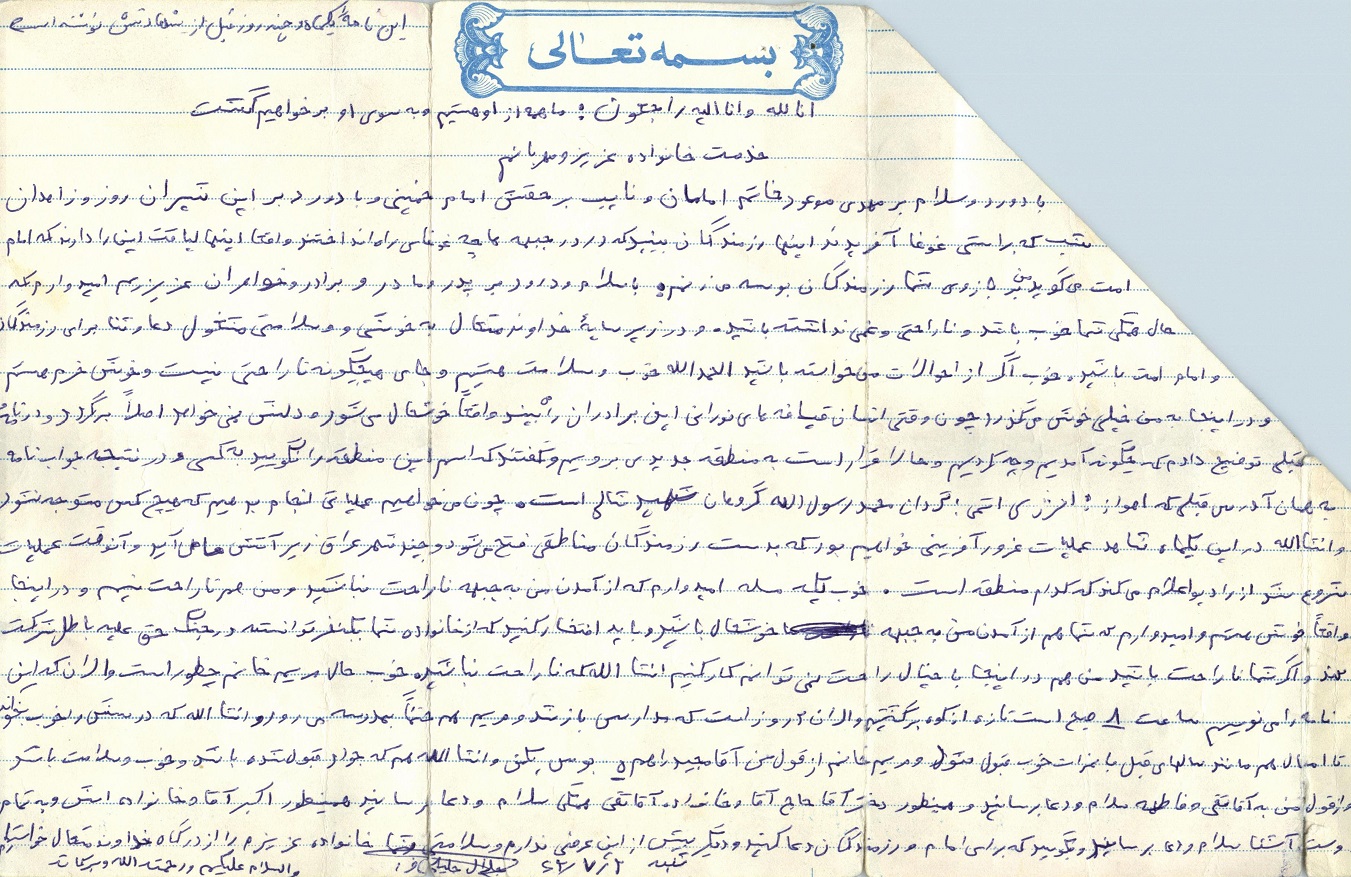 این نامه یکماه و چند روز قبل از شهادتش نوشته است
بسمه تعالی
انا لله و انا الیه راجعون : ما همه از او هستیم و به سوی او بر خواهیم گشت
خدمت خانواده عزیز و مهربانم
با دورد و سلام بر مهدی موعود خاتم امامان و نایب بر حقش امام خمینی و با دورد بر این شیران روز و زاهدان
شب که براستی غوغا آفریدند اینها رزمندگان ببنید که در در جبهه ها چه غوغای راه انداختند واقعا اینها لیاقت این را دارند که امام
امت می گوید من بر بازوی شما رزمندگان بوسه می زنم با سلام و درود بر پدر و مادر و برادر و خواهران عزیزم امیدوارم که
حال همگی شما خوب باشد و ناراحتی و غمی نداشته باشید و در زیر سایهٔ خداوند متعال به خوشی و سلامتی مشغول دعا و ثنا برای رزمندگان
و امام امت باشید. خوب اگر از احوالات من خواسته باشید الحمدالله خوب و سلامت هستیم و جای هیچگونه ناراحتی نیست و خوش خرم هستم
و در اینجا به من خیلی خوش می گذرد چون وقتی انسان قیافه های نورانی این برادران را ببیند واقعاً خوشحال می شود و دلش نمی خواهد اصلاً برگردد و در نامه
قبلی توضیح دادم که چگونه آمدیم و چه کردیم و حالا قرار است به منطقه جدیدی برویم و گفتند که اسم این منطقه را نگویید به کسی و در نتیجه جواب نامه
به همان آدرس قبلی که اهواز : انرژی اتمی : گردان محمد رسول الله گروهان شهید است. چون می خواهیم عملیاتی انجام بدهیم که هیچ کس متوجه نشود
وانشاالله در این یکماه شاهد عملیات غرور آفرینی خواهیم بود که بدست رزمندگان مناطقی فتح می شود و چند شهر عراق زیر آتش آید و آنوقت عملیات
شروع شد از رادیو اعلام می کند که کدام منطقه است. خوب امیدوارم که از آمدن من به جبهه ناراحت نباشید و من هم ناراحت نیم و در اینجا
واقعاً خوش هستم و امیدوارم که شما هم از آمدن من به جبهه خوشحال باشید و باید افتخار کنید که از خانواده شما یکنفر توانسته در جنگ حق علیه باطل شرکت
کند و اگر شما ناراحت باشید من هم در اینجا با خیال راحت نمی توانم کار کنیم انشا الله که ناراحت نباشید. خوب حال مریم خانم چطور است و الان که این
نامه را می نویسم ساعت ۸ صبح است تازه از کوه برگشتیم و الان ۲ روز است که مدارس باز شد و مریم هم حتماً بمدرسه می رود و انشا الله که درسش را خوب بخواند
تا امسال هم مانند سالهای قبل با نمرات خوب قبول شود و مریم خانم از قول من آقا مجید را هم بوس بکن و انشا الله هم که جواد قبول شده باشد و خوب و سلامت باشد
و از قول من به آقا تقی و فاطمه سلام و دعا برسانید و همینطور آقا حاج آقا و خانواده آقا تقی همگی سلام و دعا برسانید همینطور اکبر آقا و خانواده اش و به تمام
دوست آشنا سلام و دعا برسانید و بگویید که برای امام و رزمندگان دعا کنید و دیگر بیش از این عرضی ندارم و سلامتی شما خانواده عزیزم را از درگاه خداوند متعال خواستارم
والسلام علیکم و رحمت الله و برکات شنبه ۶۲/۷/۲